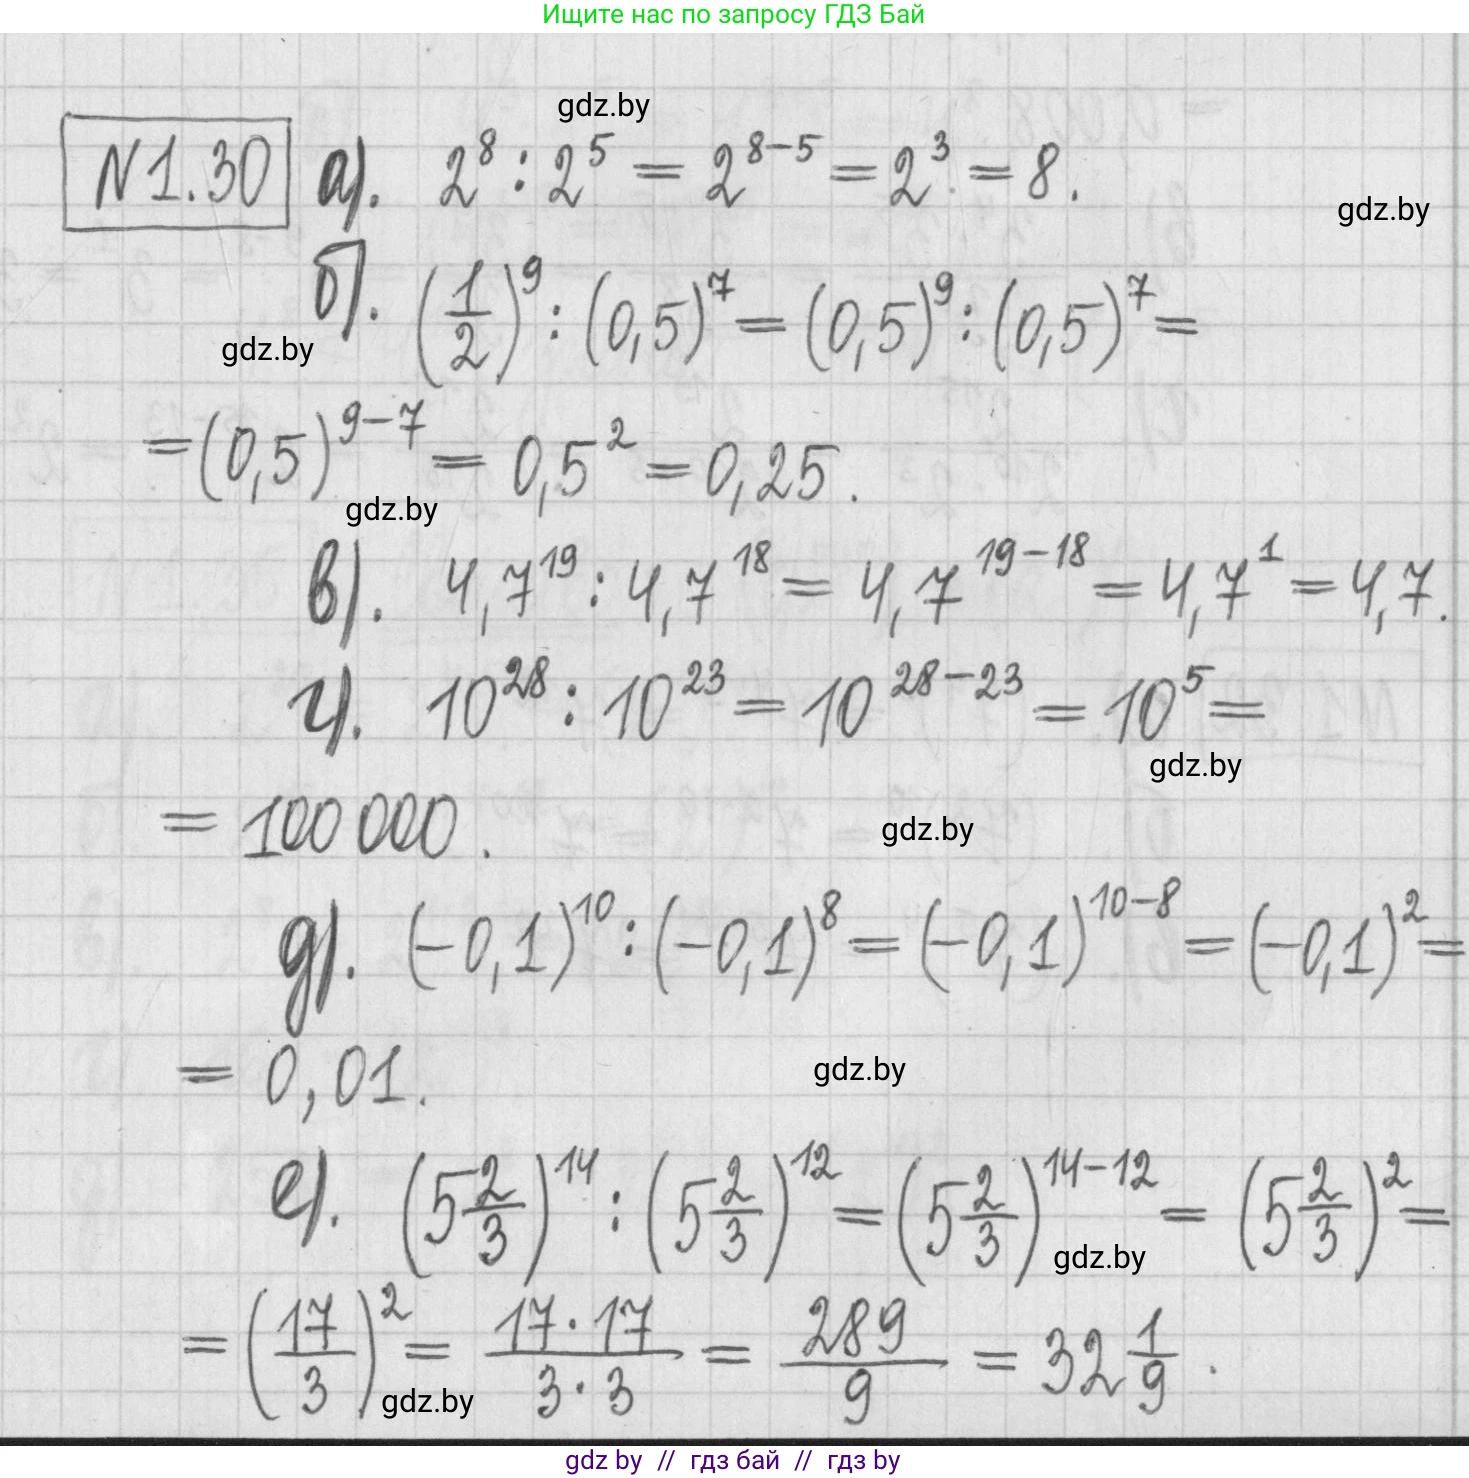 Ищите нас по запросу ГДЗ Бай
gdz.by
№1.30 а). 2^8 : 2^5 = 2^{8-5} = 2^3 = 8.
gdz.by
б). (1/2)^9 : (0,5)^7 = (0,5)^9 : (0,5)^7 =
gdz.by
= (0,5)^{9-7} = 0,5^2 = 0,25.
gdz.by
в). 4,7^{19} : 4,7^{18} = 4,7^{19-18} = 4,7^1 = 4,7.
г). 10^{28} : 10^{23} = 10^{28-23} = 10^5 =
gdz.by
= 100 000.
gdz.by
д). (-0,1)^{10} : (-0,1)^8 = (-0,1)^{10-8} = (-0,1)^2 =
= 0,01.
gdz.by
е). (5 2/3)^{14} : (5 2/3)^{12} = (5 2/3)^{14-12} = (5 2/3)^2 =
gdz.by
= (17/3)^2 = 17·17/3·3 = 289/9 = 32 1/9.
gdz.by
gdz by // гдз бай // гдз by